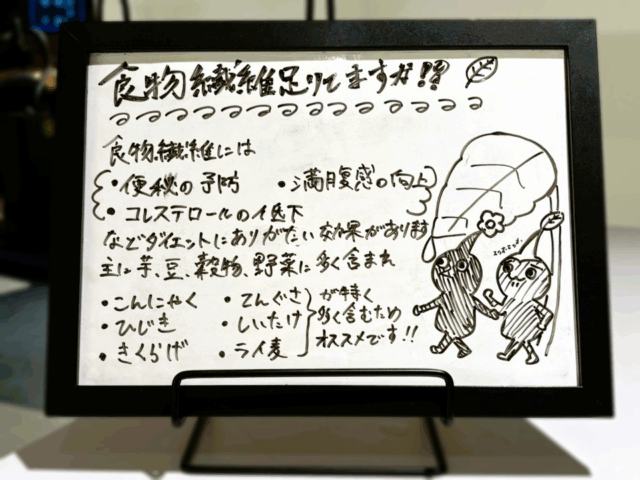 食物繊維足りてますか!?
食物繊維には
・便秘の予防 ・満腹感の向上
・コレステロールの低下
などダイエットにありがたい効果があります
主に芋、豆、穀物、野菜に多く含まれ
・こんにゃく ・てんぐさ
・ひじき ・しいたけ
・きくらげ ・ライ麦
が特に
多く含むため
オススメです!!